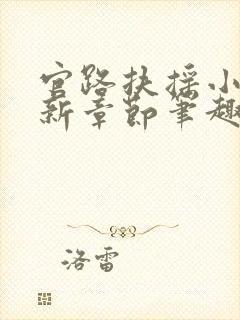 官路扶摇小
新章节笔趣
洛雷